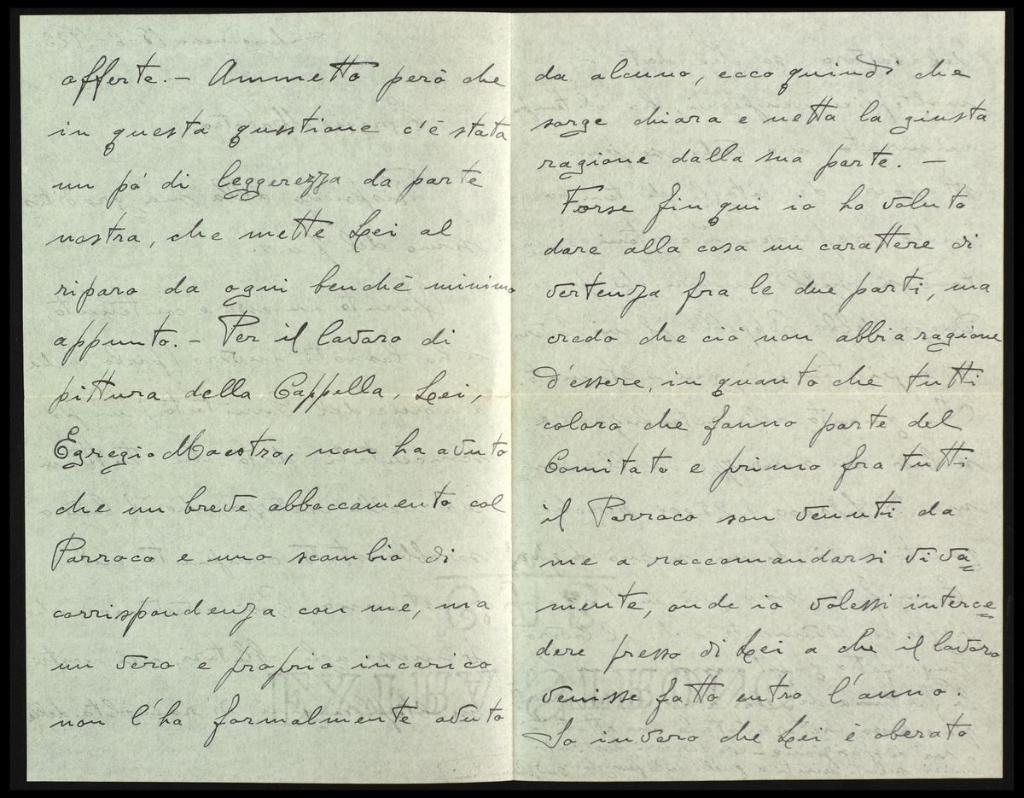 offerte. - Ammetto però che
in questa questione c'è stata
un pò di leggerezza da parte
nostra, che mette Lei al
riparo da ogni benchè minimo
appunto. - Per il lavoro di
pittura della Cappella, Lei,
Egregio Maestro, non ha avuto
che un breve abboccamento col
Parroco e uno scambio di
corrispondenza con me, ma
un vero e proprio incarico
non l'ha formalmente avuto
da alcuno, ecco quindi che
sorge chiara e netta la giusta
ragione dalla sua parte. -
Forse fin qui io ho voluto
dare alla cosa un carattere di
vertenza fra le due parti, ma
credo che ciò non abbia ragione
d'essere, in quanto che tutti
coloro che fanno parte del
Comitato e primo fra tutti
il Parroco son venuti da
me a raccomandarsi viva=
mente, onde io volessi interce=
dere presso di Lei a che il lavoro
venisse fatto entro l'anno.
So invero che Lei è oberato